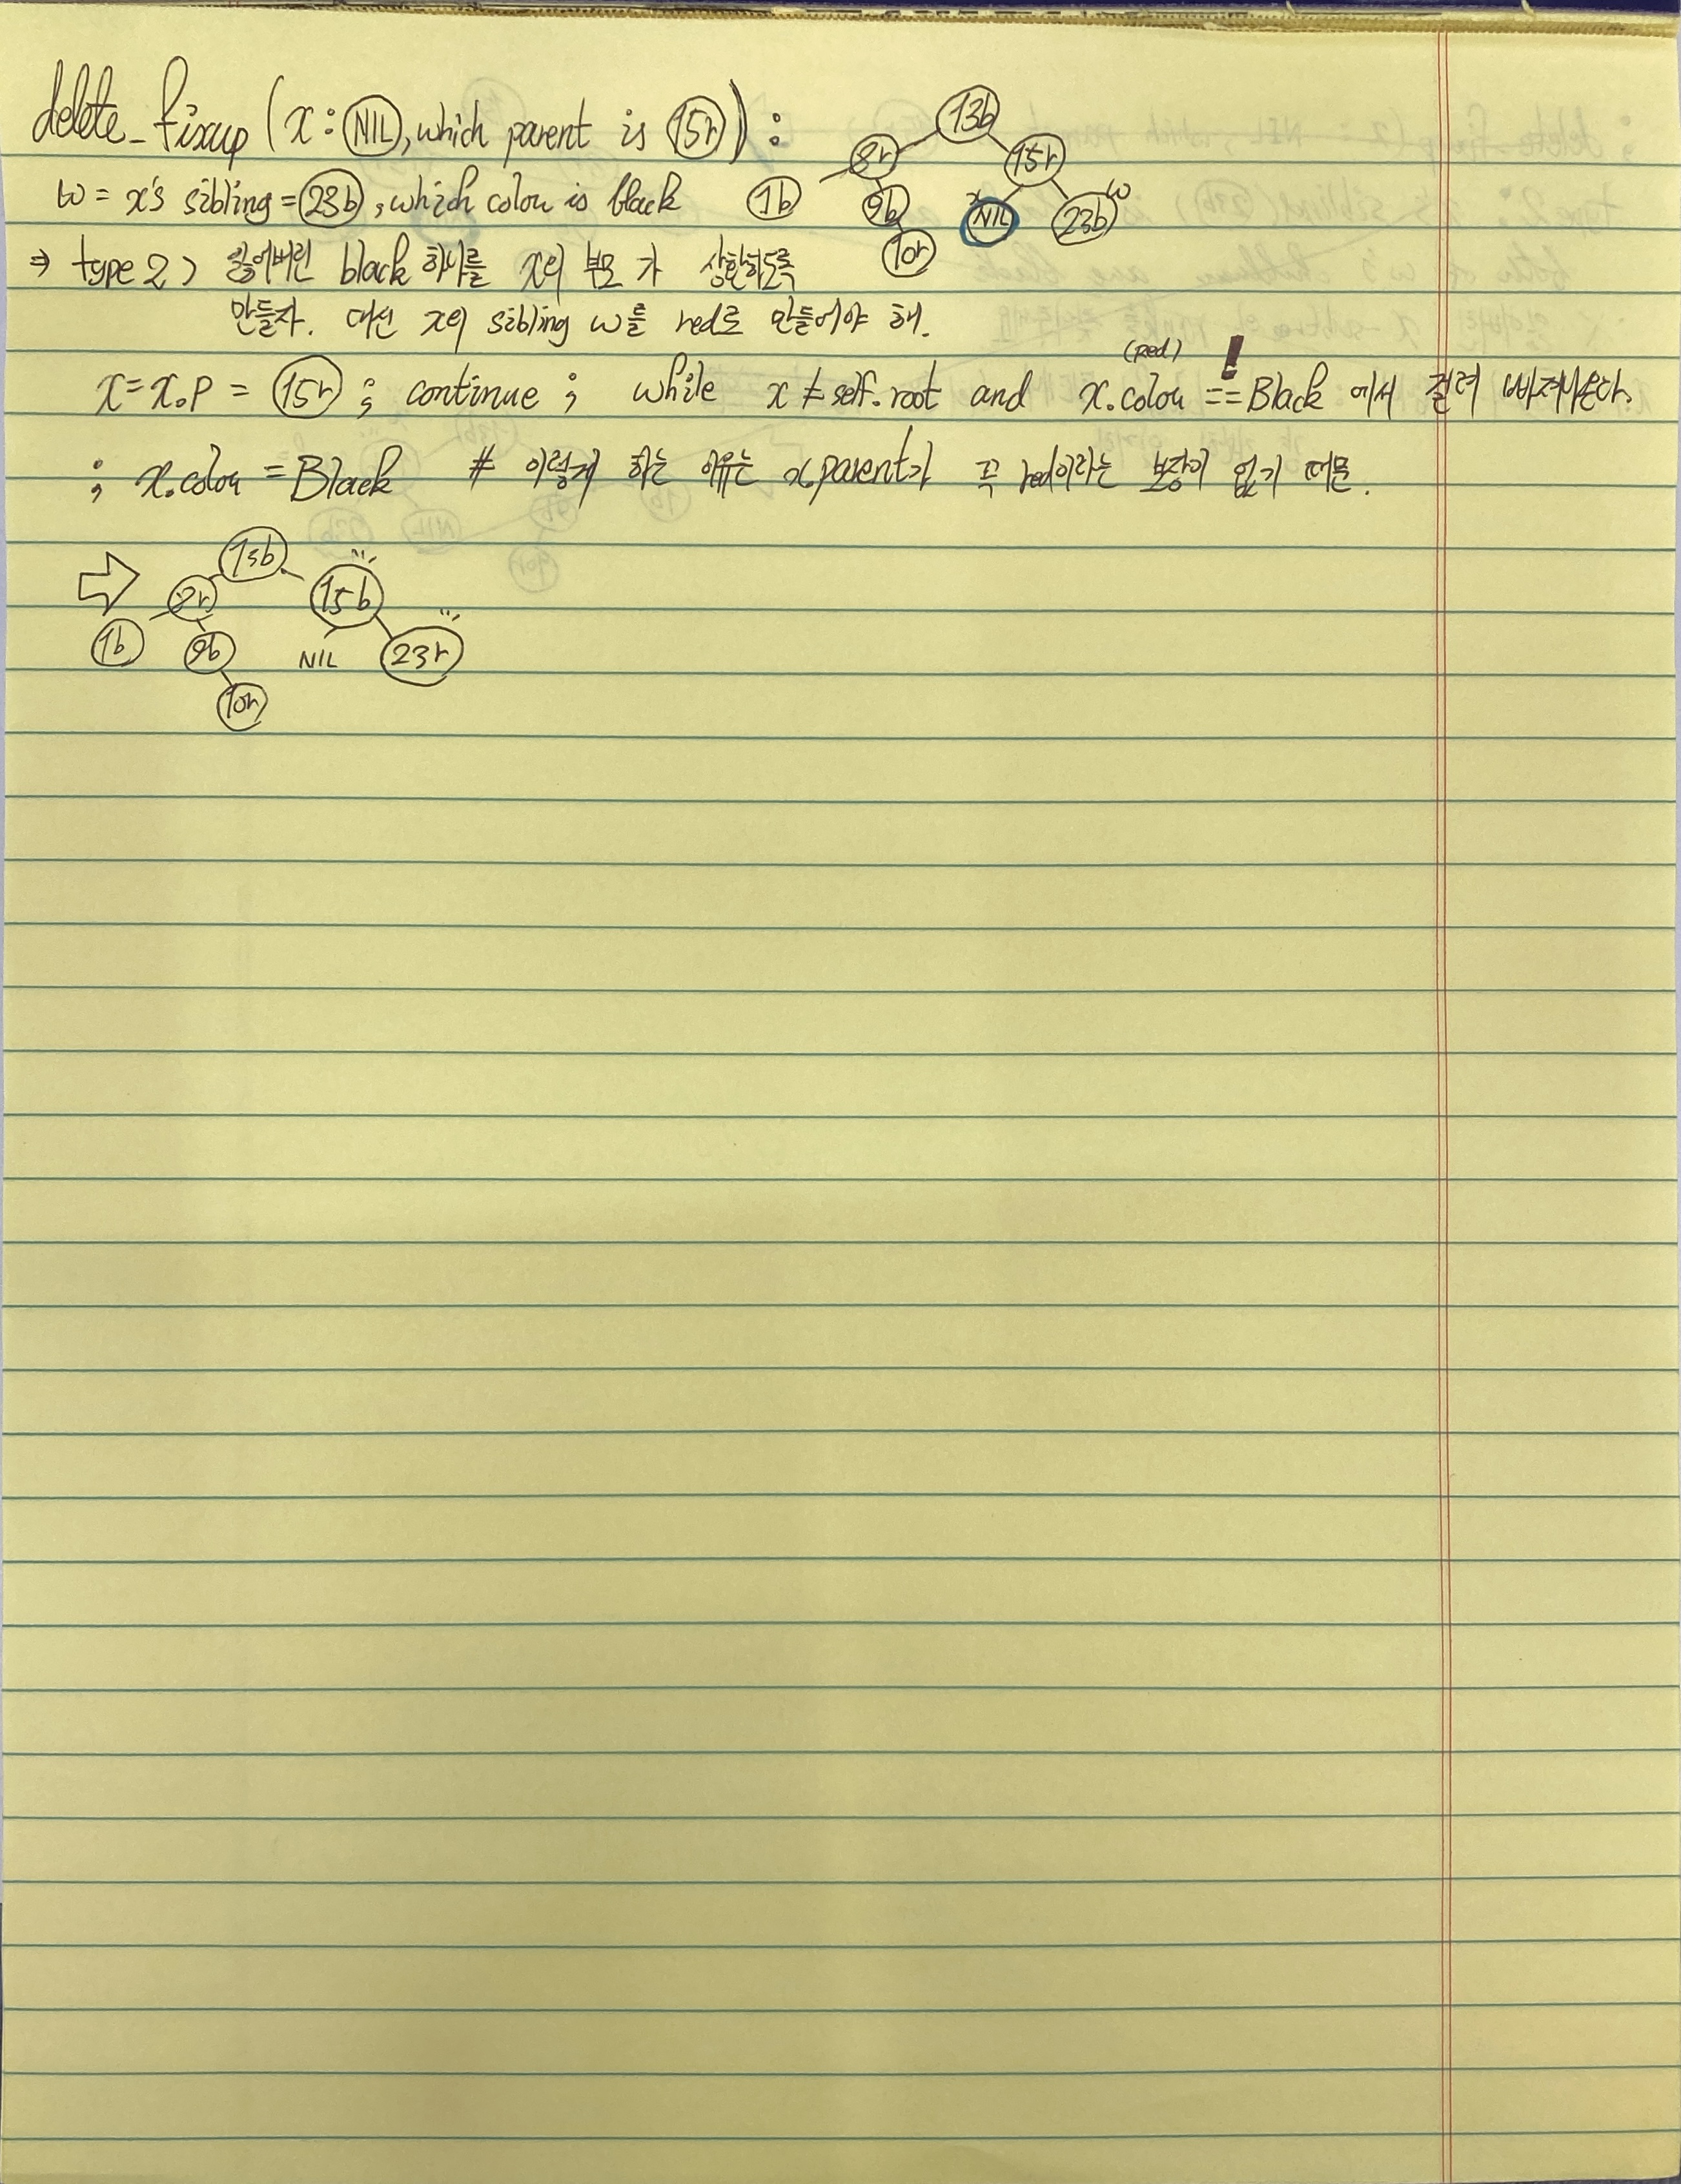 delete_fixup (x: NIL, which parent is 15r) :
w = x's sibling = 23b, which colou is black
⇒ type 2> 잃어버린 black 하나를 x의 부모가 상환하도록
만들자. 대신 x의 sibling w를 red로 만들어야 해.
13b
8r 15r
1b 9b x NIL 23b w
10r
(red) !
x = x.p = 15r ; continue ; while x ≠ self.root and x.colou == Black 에서 걸려 빠져나온다.
; x.colou = Black # 이렇게 하는 이유는 x.parent가 꼭 red이라는 보장이 없기 때문.
13b
8r 15b
1b 9b NIL 23r
10r